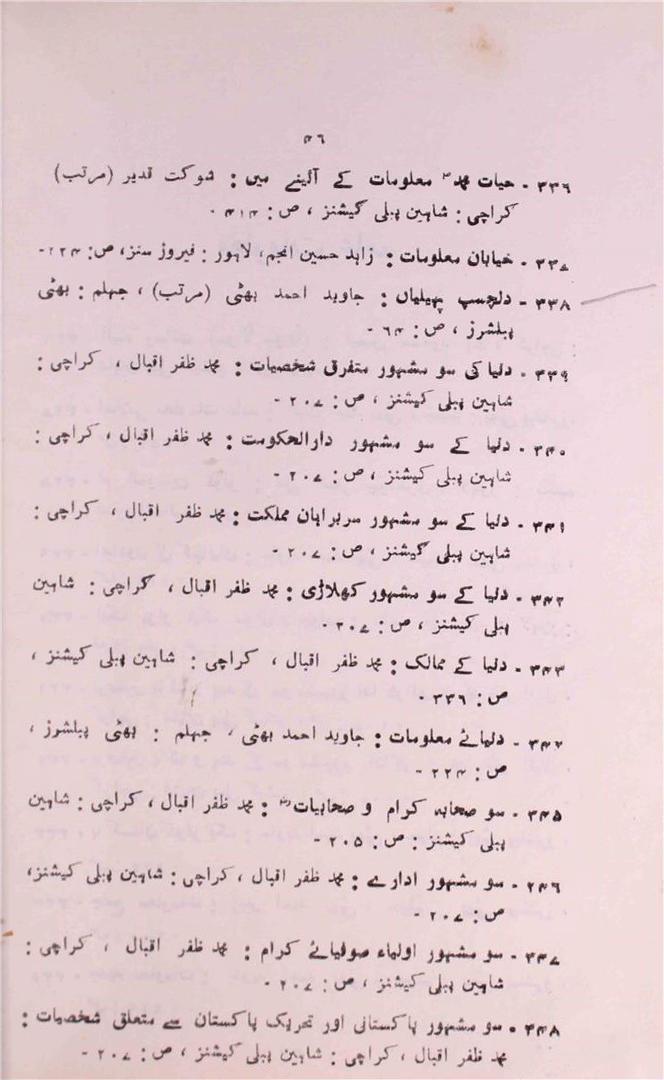 ۴۶
۳۳۶ - حیات محمدؐ معلومات کے آئینے میں : شوکت قدیر (مرتب)
کراچی : شاہین پبلی گیشنز ، ص : ۴۱۴ -
۳۳۷ - خیابان معلومات : زاہد حسین انجم، لاہور : فیروز سنز، ص: ۲۲۴-
۳۳۸ - دلچسپ پہیلیاں : جاوید احمد بھٹی (مرتب) ، جہلم : بھٹی
پبلشرز ، ص : ۶۴ -
۳۳۹ - دنیا کی سو مشہور متفرق شخصیات : محمد ظفر اقبال ، کراچی :
شاہین پبلی کیشنز ، ص : ۲۰۷ -
۳۴۰ - دنیا کے سو مشہور دارالحکومت : محمد ظفر اقبال ، کراچی :
شاہین پبلی کیشنز ، ص : ۲۰۷ -
۳۴۱ - دنیا کے سو مشہور سربراہان مملکت : محمد ظفر اقبال ، کراچی :
شاہین پبلی کیشنز ، ص : ۲۰۷ -
۳۴۲ - دنیا کے سو مشہور کھلاڑی : محمد ظفر اقبال ، کراچی : شاہین
پبلی کیشنز ، ص : ۲۰۷ -
۳۴۳ - دنیا کے ممالک : محمد ظفر اقبال ، کراچی : شاہین پبلی کیشنز ،
ص : ۳۳۶ -
۳۴۴ - دنیائے معلومات : جاوید احمد بھٹی ، جہلم : بھٹی پبلشرز ،
ص : ۲۲۴ -
۳۴۵ - سو صحابہ کرام و صحابیاتؓ : محمد ظفر اقبال ، کراچی : شاہین
پبلی کیشنز : ص : ۲۰۵ -
۳۴۶ - سو مشہور ادارے : محمد ظفر اقبال ، کراچی : شاہین پبلی کیشنز،
ص : ۲۰۷ -
۳۴۷ - سو مشہور اولیاء صوفیائے کرام : محمد ظفر اقبال ، کراچی :
شاہین پبلی کیشنز ، ص : ۲۰۷ -
۳۴۸ - سو مشہور پاکستانی اور تحریک پاکستان سے متعلق شخصیات :
محمد ظفر اقبال ، کراچی : شاہین پبلی کیشنز ، ص : ۲۰۷ -